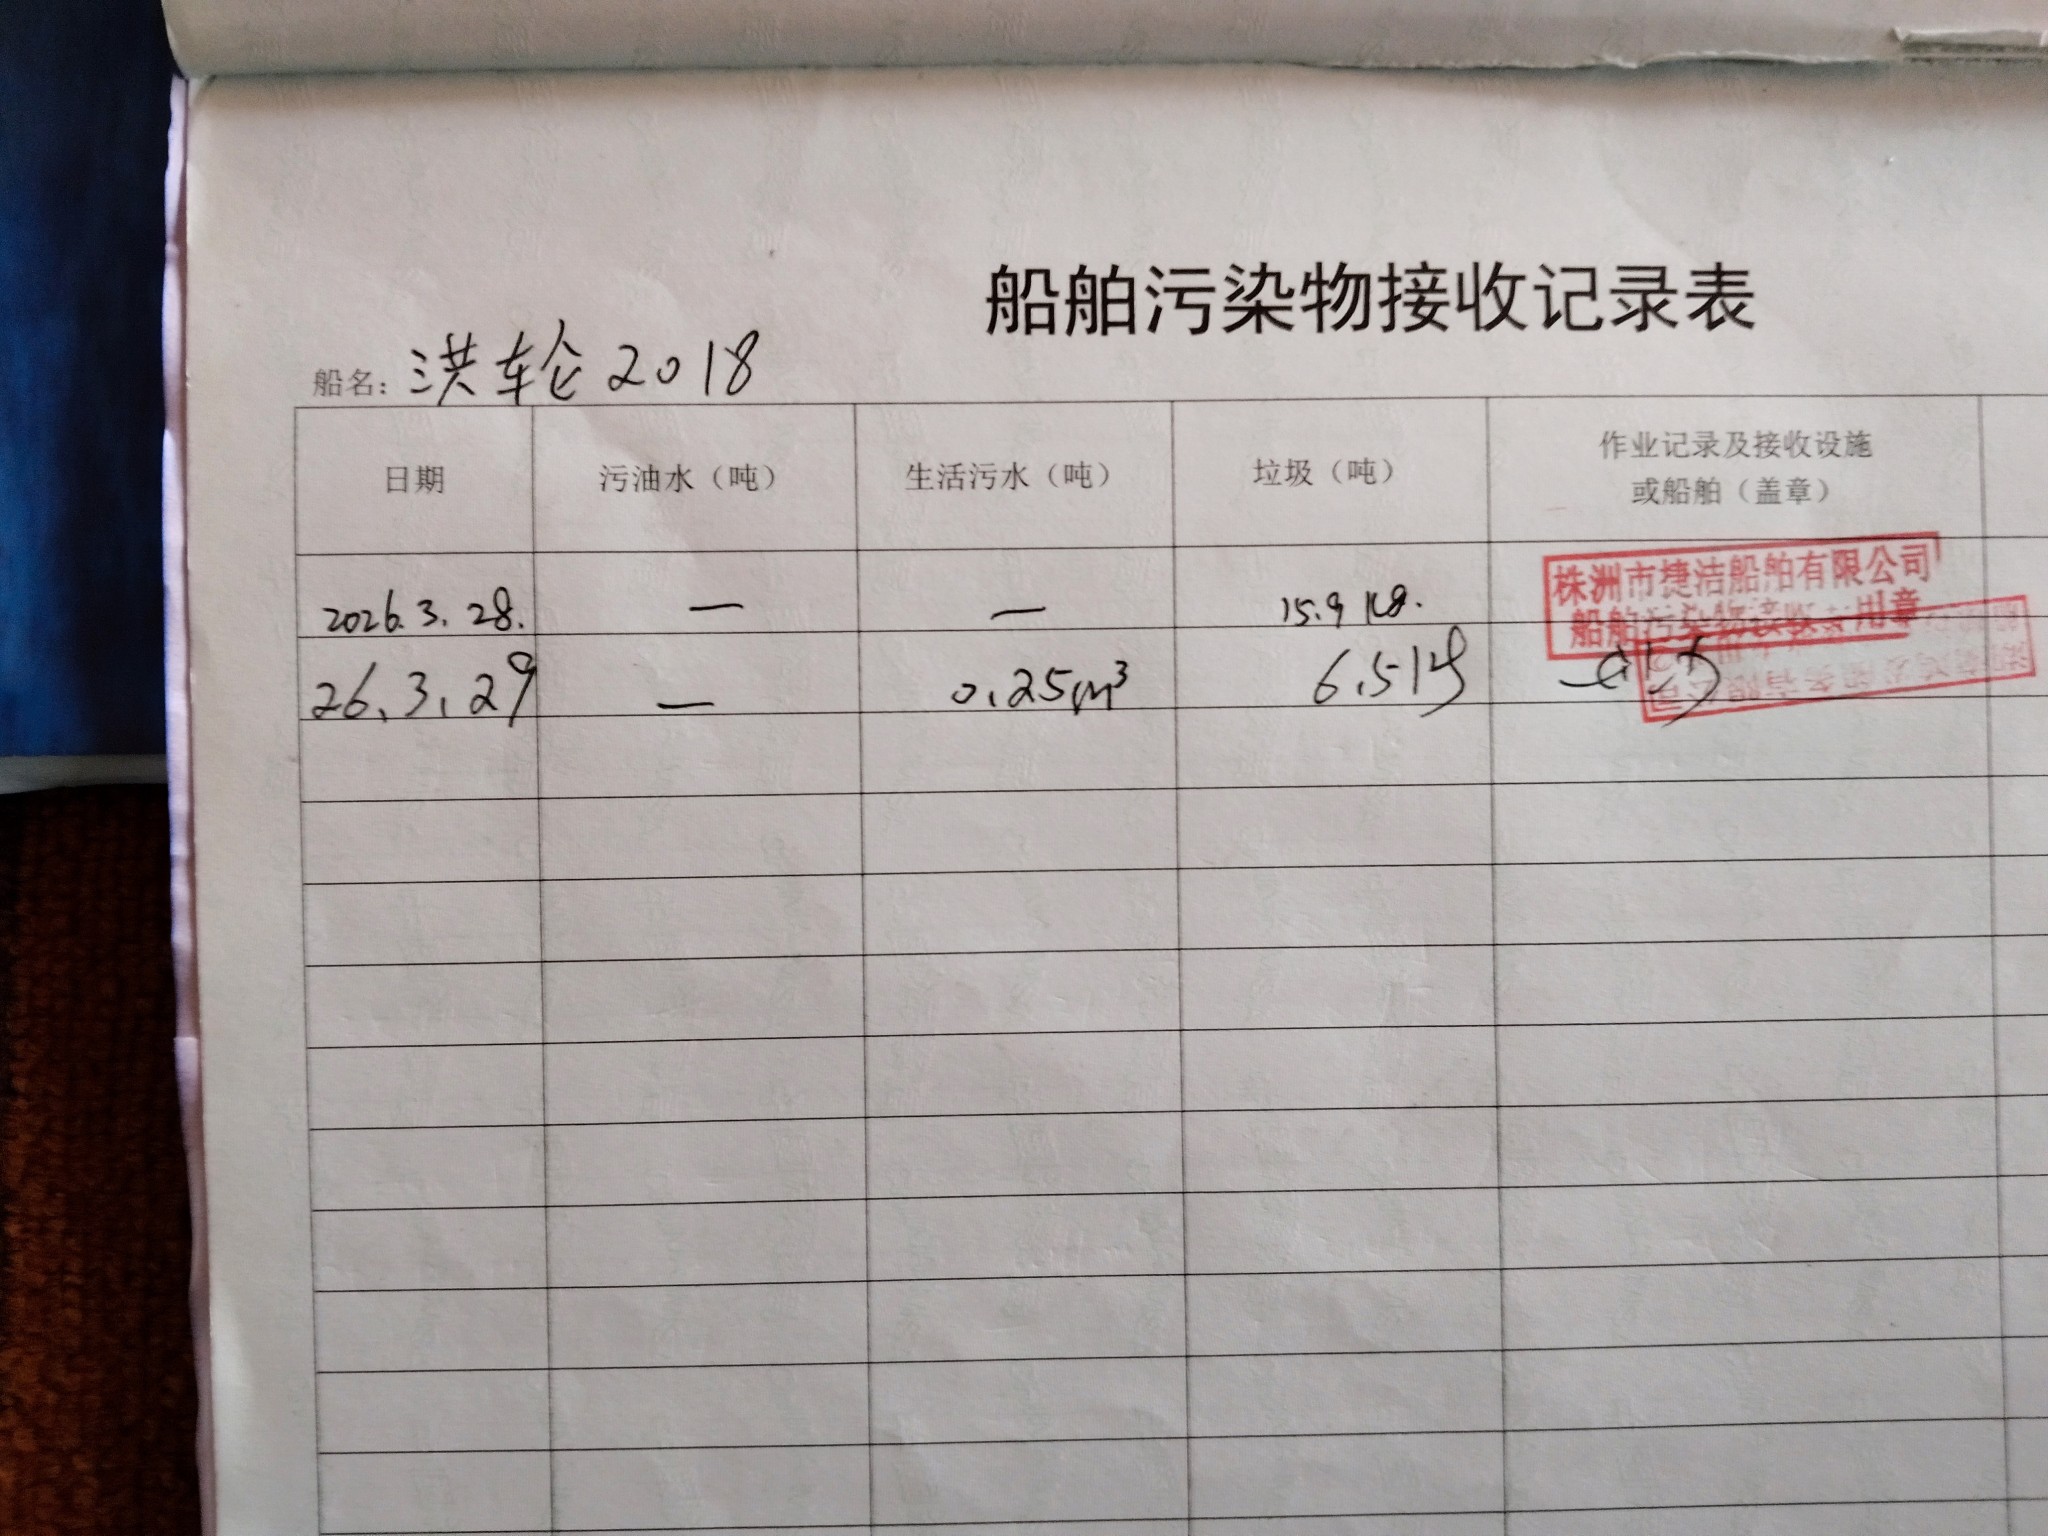 船舶污染物接收记录表
船名：洪轮2018
日期 污油水（吨） 生活污水（吨） 垃圾（吨） 作业记录及接收设施
或船舶（盖章）
2026.3.28. — — 15.9 kg. 株洲市捷洁船舶有限公司
船舶污染物接收专用章
26.3.29 — 0.25m³ 6.5kg